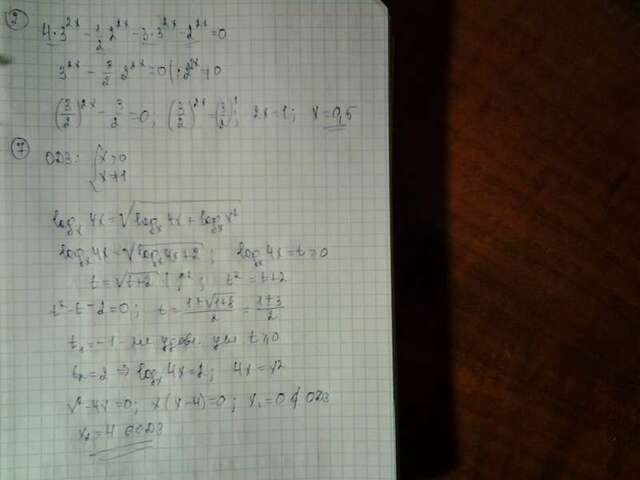 2
4·3^{2x} - \frac{1}{2} 2^{2x} - 3·3^{2x} - 2^{2x} = 0
3^{2x} - \frac{3}{2} 2^{2x} = 0 | : 2^{2x} ≠ 0
(\frac{3}{2})^{2x} - \frac{3}{2} = 0; (\frac{3}{2})^{2x} = (\frac{3}{2})^1; 2x = 1; x = 0,5
7
ОДЗ: { x > 0
x ≠ 1
log_x 4x = √(log_x 4x + log_x x^2)
log_x 4x = √(log_x 4x + 2); log_x 4x = t ≥ 0
t = √(t+2) | ^2; t^2 = t+2
t^2 - t - 2 = 0; t = \frac{1±√(1+8)}{2} = \frac{1±3}{2}
t_1 = -1 - не удовл. усл t ≥ 0
t_2 = 2 ⇒ log_x 4x = 2; 4x = x^2
x^2 - 4x = 0; x(x-4) = 0; x_1 = 0 ∉ ОДЗ
x_2 = 4 ∈ ОДЗ